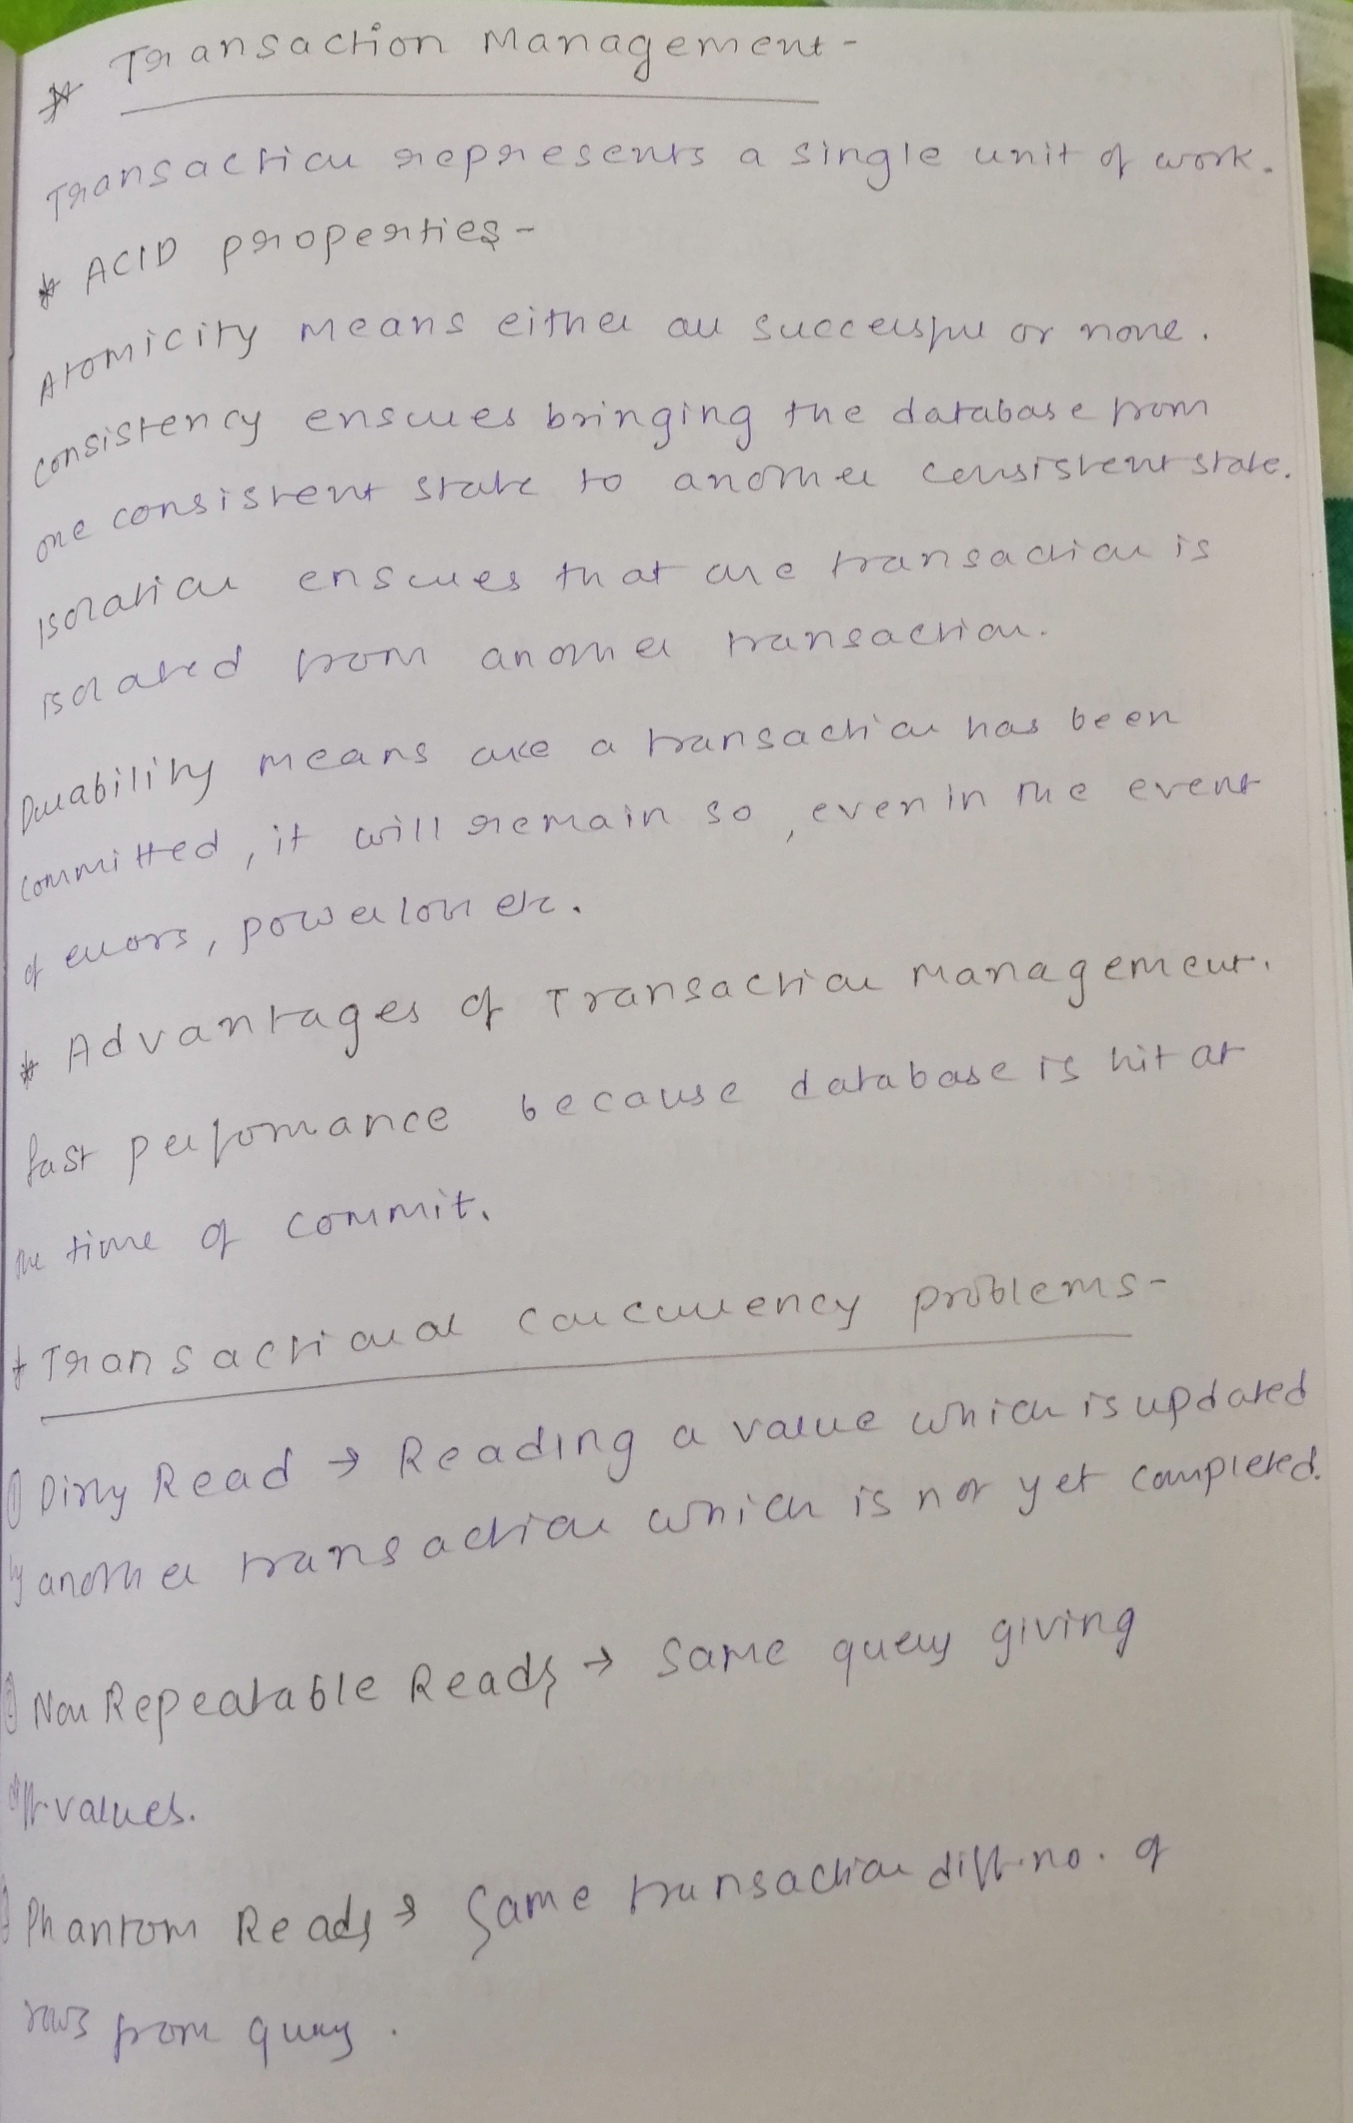 * Transaction Management -
Transaction represents a single unit of work.
* ACID properties -
Atomicity means either all successful or none.
Consistency ensures bringing the database from
one consistent state to another consistent state.
Isolation ensures that one transaction is
isolated from another transaction.
Durability means once a transaction has been
committed, it will remain so, even in the event
of errors, power loss etc.
* Advantages of Transaction Management.
fast performance because database is hit at
the time of commit.
* Transactional Concurrency problems -
① Dirty Read → Reading a value which is updated
by another transaction which is not yet completed.
② Non Repeatable Reads → Same query giving
diff. values.
③ Phantom Reads → Same transaction diff. no. of
rows from query.